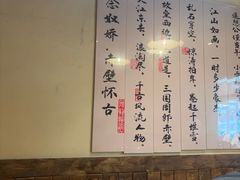 念奴娇·赤壁怀古
大江东去，浪淘尽，千古风流人物，
故垒西边，人道是，三国周郎赤壁。
乱石穿空，惊涛拍岸，卷起千堆雪。
江山如画，一时多少豪
遥想公瑾当年，小